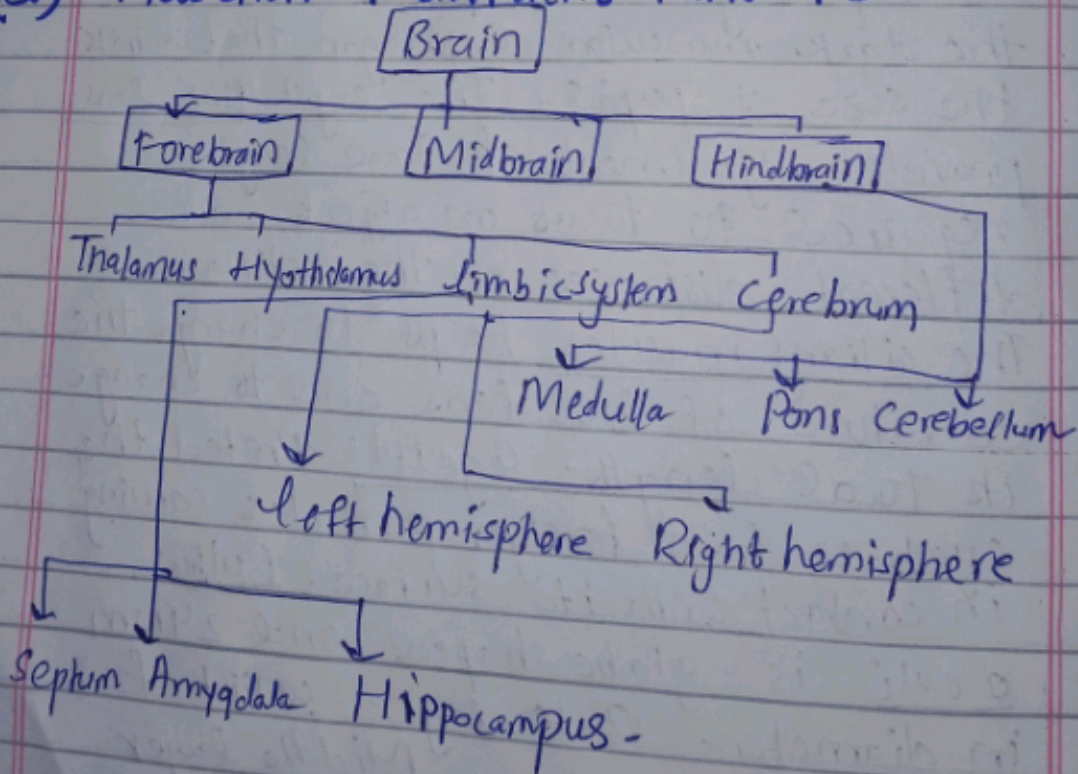 Brain
Forebrain Midbrain Hindbrain
Thalamus Hyothalamus Limbic system Cerebrum
Medulla Pons Cerebellum
left hemisphere Right hemisphere
Septum Amygdala Hippocampus-